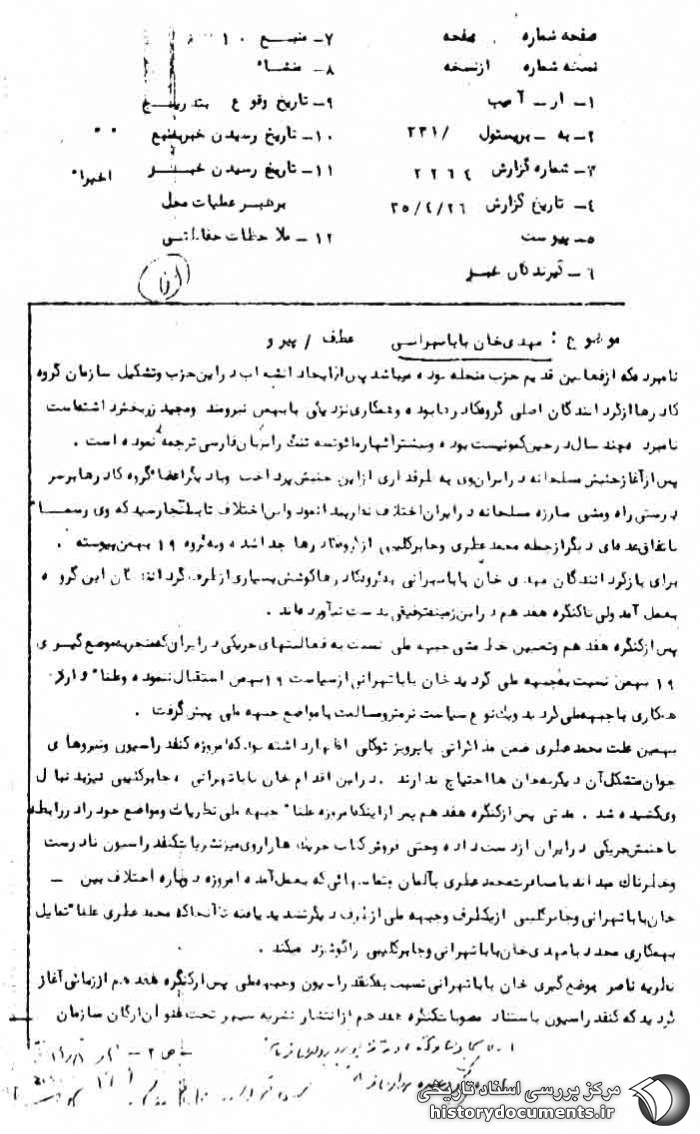 صفحه شماره صفحه
نسخه شماره ازنسخه
۱- از - آ
۲- به - پریستول /۲۳۱
۳- شماره گزارش ۲۲۶۴
۴- تاریخ گزارش ۳۵/۴/۲۶
۵- پیوست
۶- گیرندگان خبر
۷- منبع
۸- منشاء
۹- تاریخ وقوع بتدریج
۱۰- تاریخ رسیدن خبربمنبع
۱۱- تاریخ رسیدن خبر اخیراً
برهبر عملیات محل
۱۲- ملاحظات حفاظتی
موضوع : مهدی خان باباتهرانی عطف / پیرو
نامبرده که ازفعالین قدیم حزب منحله توده میباشد پس ازایجاد انشعاب دراین حزب وتشکیل سازمان گروه
کادرها ازگردانندگان اصلی گروه کادرها بوده وهمکاری نزدیکی بابهمن نیرومند ومجید زربخش داشته است
نامبرده چند سال درچین کمونیست بوده وبیشتر آثار مائوتسه تنگ را بزبان فارسی ترجمه نموده است .
پس ازآغاز جنبش مسلحانه درایران وی به طرفداری ازاین جنبش پرداخت وبادیگراعضاء گروه کادرها برسر
درستی راه ومشی مبارزه مسلحانه درایران اختلاف نظر پیدا نمود واین اختلاف تابدانجا رسید که وی رسماً
باتفاق عده ای دیگرازجمله محمد عطری وجابرکلیبی ازگروه کادرها جدا شده وبه گروه ۱۹ بهمن پیوسته .
برای بازگرداندن مهدی خان باباتهرانی به گروه کادرها کوشش بسیاری ازطرف گردانندگان این گروه
بعمل آمد ولی تاکنگره هفدهم دراین زمینه توفیقی بدست نیاورده اند .
پس ازکنگره هفدهم وتعیین خط مشی جبهه ملی نسبت به فعالیتهای چریکی درایران که منجربه موضع گیری
۱۹ بهمن نسبت به جبهه ملی گردید خان باباتهرانی ازسیاست ۱۹ بهمن استقبال ننموده وعلناً
همکاری باجبهه ملی گردید ویک نوع سیاست نرمتر ومسالمت بامواضع جبهه ملی پیش گرفت .
بهمین علت محمد عطری ضمن مذاکراتی باپرویز توکلی اظهار داشته بود که امروزه کنفدراسیون ونیروهای
جوان متشکل آن دیگر به خان هااحتیاج ندارند . دراین اقدام خان باباتهرانی ، جابرکلیبی نیزبدنبال
وی کشیده شد . مدتی پس ازکنگره هفدهم پس ازاینکه امروزه علناً جبهه ملی نظریات ومواضع خود رادررابطه
باجنبش چریکی درایران ازدست داده وحتی فروش کتاب چریک ها را روی میزنشریات کنفدراسیون نادرست
وخطرناک میداند بامسافرت محمد عطری به آلمان وتماسهائی که بعمل آمده امروزه دوباره اختلاف بین -
خان باباتهرانی وجابرکلیبی ازیکطرف وجبهه ملی ازطرف دیگرتشدید یافته تاآنجاکه محمد عطری علناً تمایل
بهمکاری مجدد بامهدی خان باباتهرانی وجابرکلیبی راگوشزد میکند .
نظریه ناصر موضع گیری خان باباتهرانی نسبت به کنفدراسیون وجبهه ملی پس ازکنگره هفدهم اززمانی آغاز
گردید که کنفدراسیون بااستناد مصوبات کنگره هفدهم ازانتشار نشریه سپهر تحت عنوان ارگان سازمان
مرکز بررسی اسناد تاریخی
historydocuments.ir